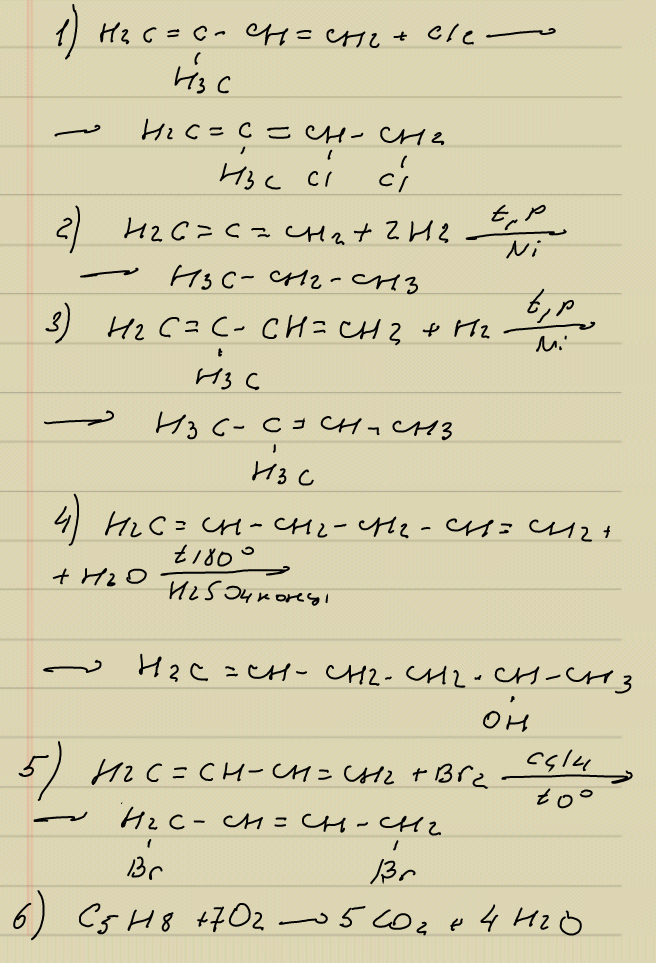 1) H₂C = C - CH = CH₂ + Cl₂ ⟶
H₃C
⟶ H₂C = C = CH - CH₂
H₃C Cl Cl
2) H₂C = C = CH₂ + 2H₂ t, p
Ni
⟶ H₃C - CH₂ - CH₃
3) H₂C = C - CH = CH₂ + H₂ t, p
H₃C Ni
⟶ H₃C - C = CH - CH₃
H₃C
4) H₂C = CH - CH₂ - CH₂ - CH = CH₂ +
+ H₂O t 180°
H₂SO₄ конц,
⟶ H₂C = CH - CH₂ - CH₂ - CH - CH₃
OH
5) H₂C = CH - CH = CH₂ + Br₂ CCl₄
t 0°
⟶ H₂C - CH = CH - CH₂
Br Br
6) C₅H₈ + 7O₂ ⟶ 5CO₂ + 4H₂O